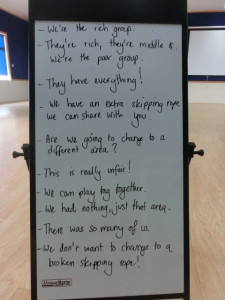 - We're the rich group
- They're rich, they're middle &
we're the poor group
- They have everything!
- We have an extra skipping rope
we can share with you
- Are we going to change to a
different area?
- This is really unfair!
- We can play tag together.
- We had nothing, just that area.
- There was so many of us
- We don't want to change to a
broken skipping rope!